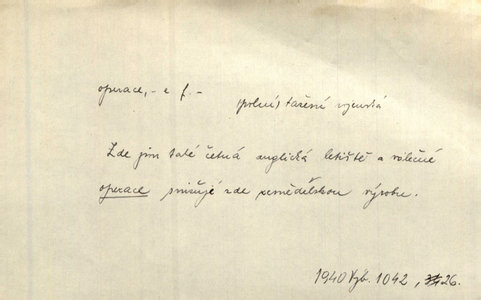 operace, -e f. -
(polní) tažení vojenská
Zde jsou také četná anglická letiště a válečné
operace snižují zde zemědělskou výrobu.
1940 Výb. 1042, 26.